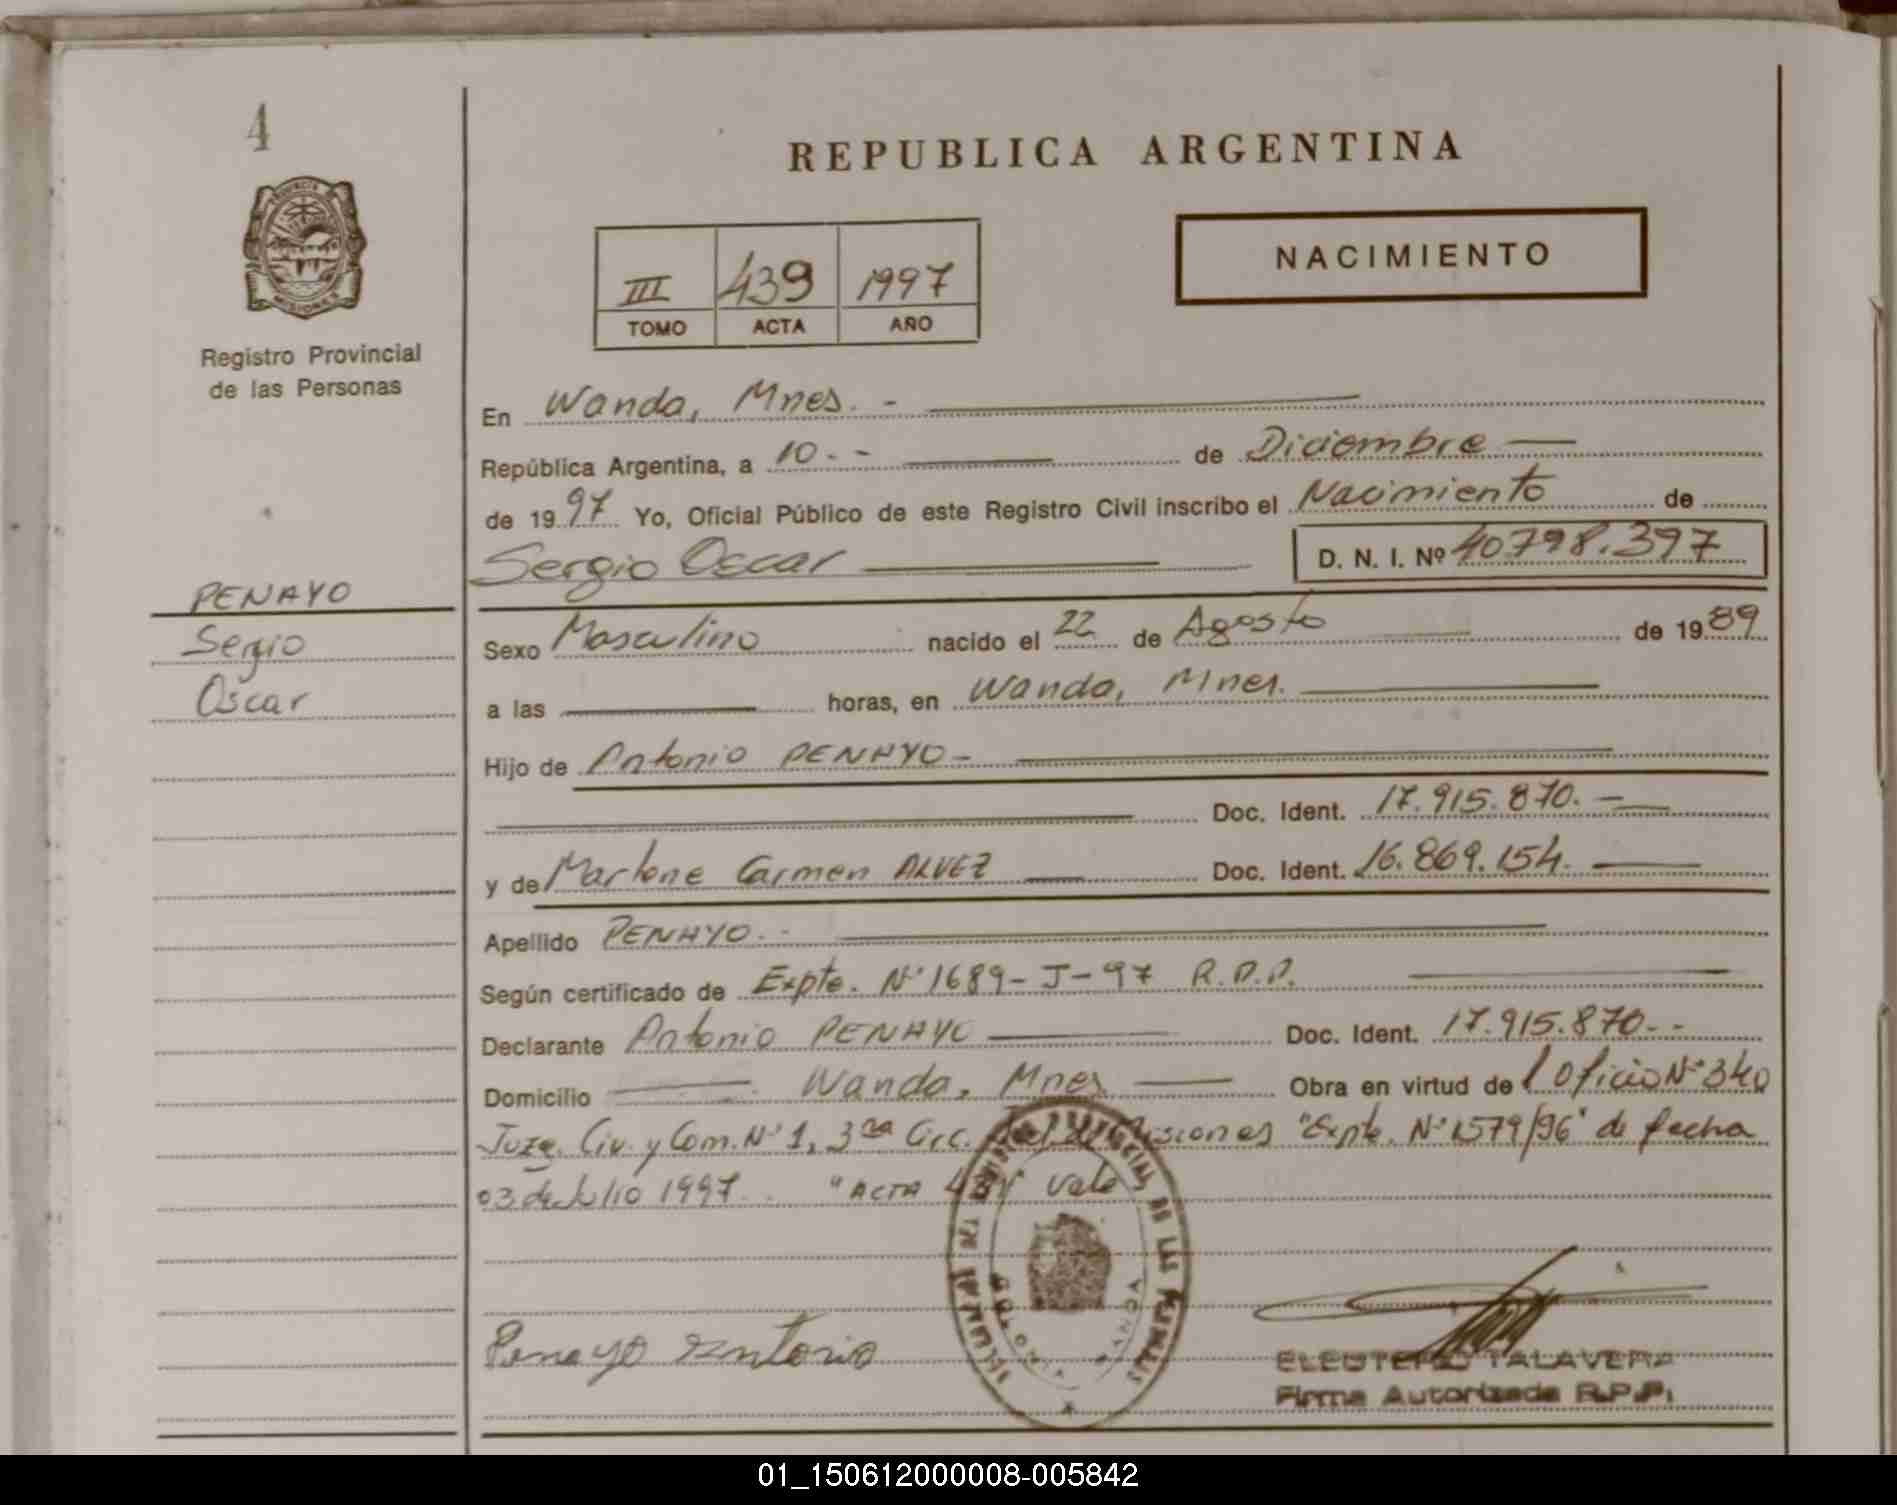 4
REPUBLICA ARGENTINA
III 439 1997
TOMO ACTA AÑO
NACIMIENTO
Registro Provincial
de las Personas
En Wanda, Mnes. -
República Argentina, a 10.- - de Diciembre
de 1997 Yo, Oficial Público de este Registro Civil inscribo el Nacimiento de
Sergio Oscar D. N. I. Nº 40798.397
PENAYO
Sergio
Oscar
Sexo Masculino nacido el 22 de Agosto de 1989
a las horas, en Wanda, Mnes.
Hijo de Antonio PENAYO -
Doc. Ident. 17.915.870. -
y de Marlene Carmen ALVEZ Doc. Ident. 16.869.154.
Apellido PENAYO. -
Según certificado de Expte. Nº 1689- J-97 R.P.P.
Declarante Antonio PENAYO Doc. Ident. 17.915.870.-
Domicilio Wanda, Mnes Obra en virtud de Oficio Nº 340
Juzg. Civ. y Com. Nº 1, 3ra Circ. de Misiones "Expte. Nº 1579/96" de fecha
03 de Julio 1997. "ACTA 439 vale
PROVINCIAL DE LAS PERSONAS
COLONIA WANDA
Penayo Antonio
ELEUTERIO TALAVERA
Firma Autorizada R.P.P.
01_150612000008-005842